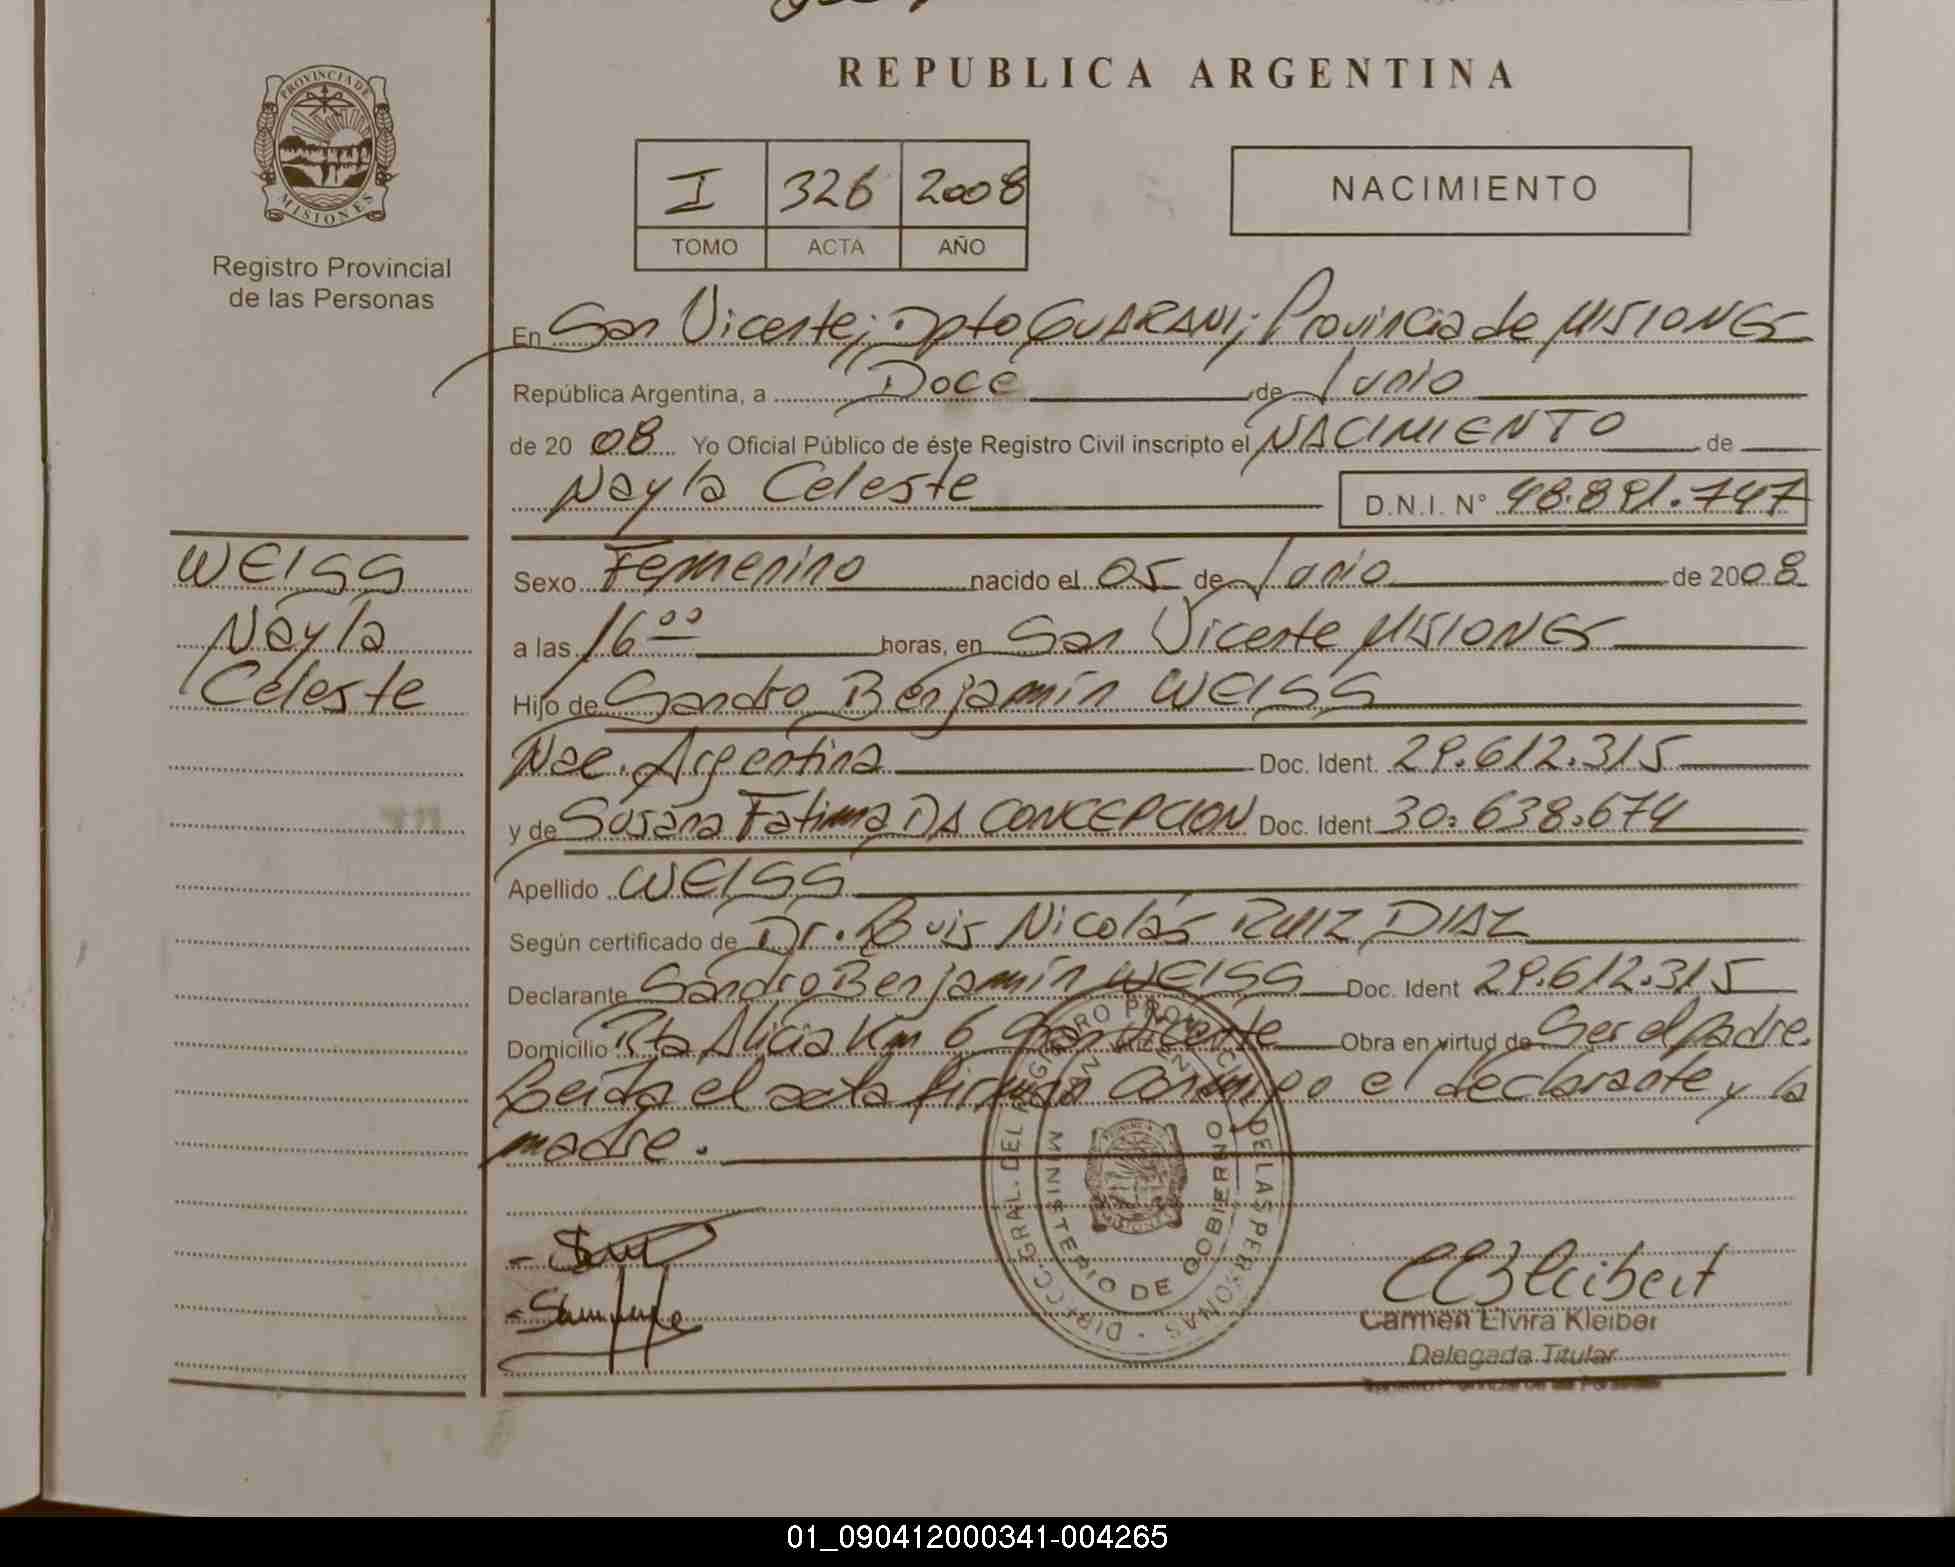 REPUBLICA ARGENTINA
PROVINCIA DE
MISIONES
Registro Provincial
de las Personas
I 326 2008
TOMO ACTA AÑO
NACIMIENTO
En San Vicente; Dpto GUARANI; Provincia de MISIONES
República Argentina, a Doce de Junio
de 2008 Yo Oficial Público de éste Registro Civil inscripto el NACIMIENTO de
Nayla Celeste D.N.I. N° 48.891.747
WEISS
Nayla
Celeste
Sexo Femenino nacido el 05 de Junio de 2008
a las 16 00 horas, en San Vicente MISIONES
Hijo de Sandro Benjamín WEISS
Nac. Argentina Doc. Ident. 29.612.315
y de Susana Fatima DA CONCEPCION Doc. Ident 30.638.674
Apellido WEISS
Según certificado de Dr. Luis Nicolás RUIZ DIAZ
Declarante Sandro Benjamín WEISS Doc. Ident 29.612.315
Domicilio Rta Alicia Km 6 San Vicente Obra en virtud de Ser el padre.
Leida el acta firman conmigo el declarante y la
madre.
DIRECC. GRAL. DEL REGISTRO PROVINCIAL DE LAS PERSONAS
MINISTERIO DE GOBIERNO
Carmen Elvira Kleiber
Delegada Titular
01_090412000341-004265